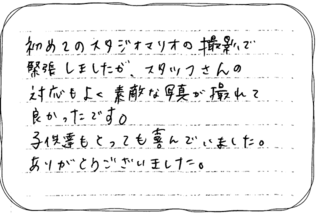 初めてのスタジオマリオの撮影で
緊張しましたが、スタッフさんの
対応もよく素敵な写真が撮れて
良かったです。
子供達もとっても喜んでいました。
ありがとうございました。